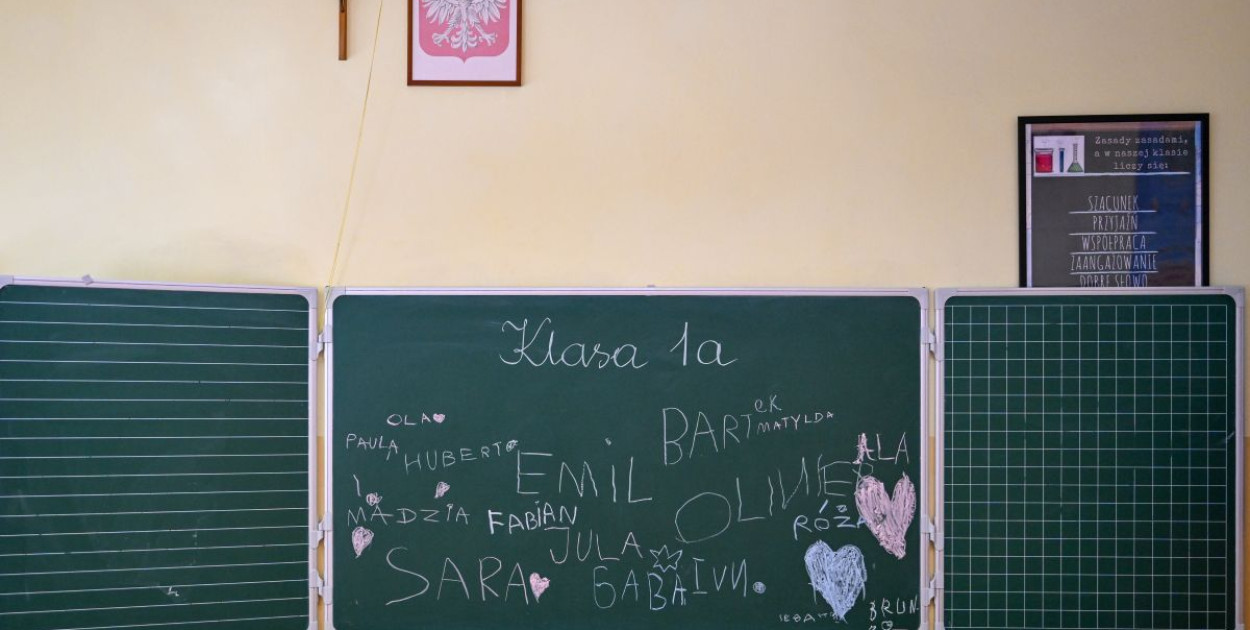 Zasady zasadami,
a w naszej klasie
liczy się:
SZACUNEK
PRZYJAŹŃ
WSPÓŁPRACA
ZAANGAŻOWANIE
DOBRE SŁOWO
Klasa 1a
OLA
BARTEK
MATYLDA
PAULA
HUBERT
ALA
EMIL
MADZIA
FABIAN
RÓŻA
JULA
SARA